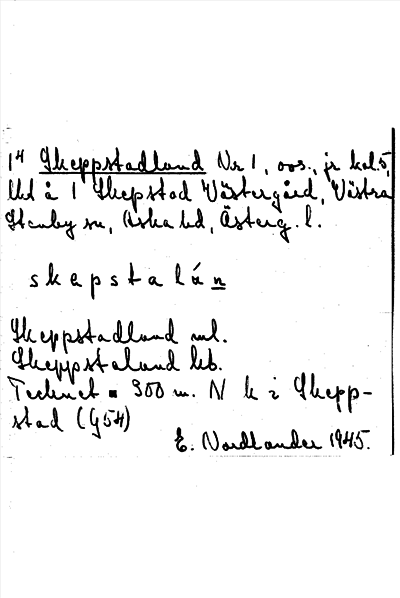 14 Skeppstadland Nr 1, oos., jr kol.5,
lbd å 1 Skepstad Västergård, Västra
Stenby sn, Aska hd, Österg. l.
skepstalán
Skeppstadland ml.
Skeppstaland kb.
Tecknet ▪ 900 m. N k i Skepp-
stad (G54)
E. Nordlander 1945.